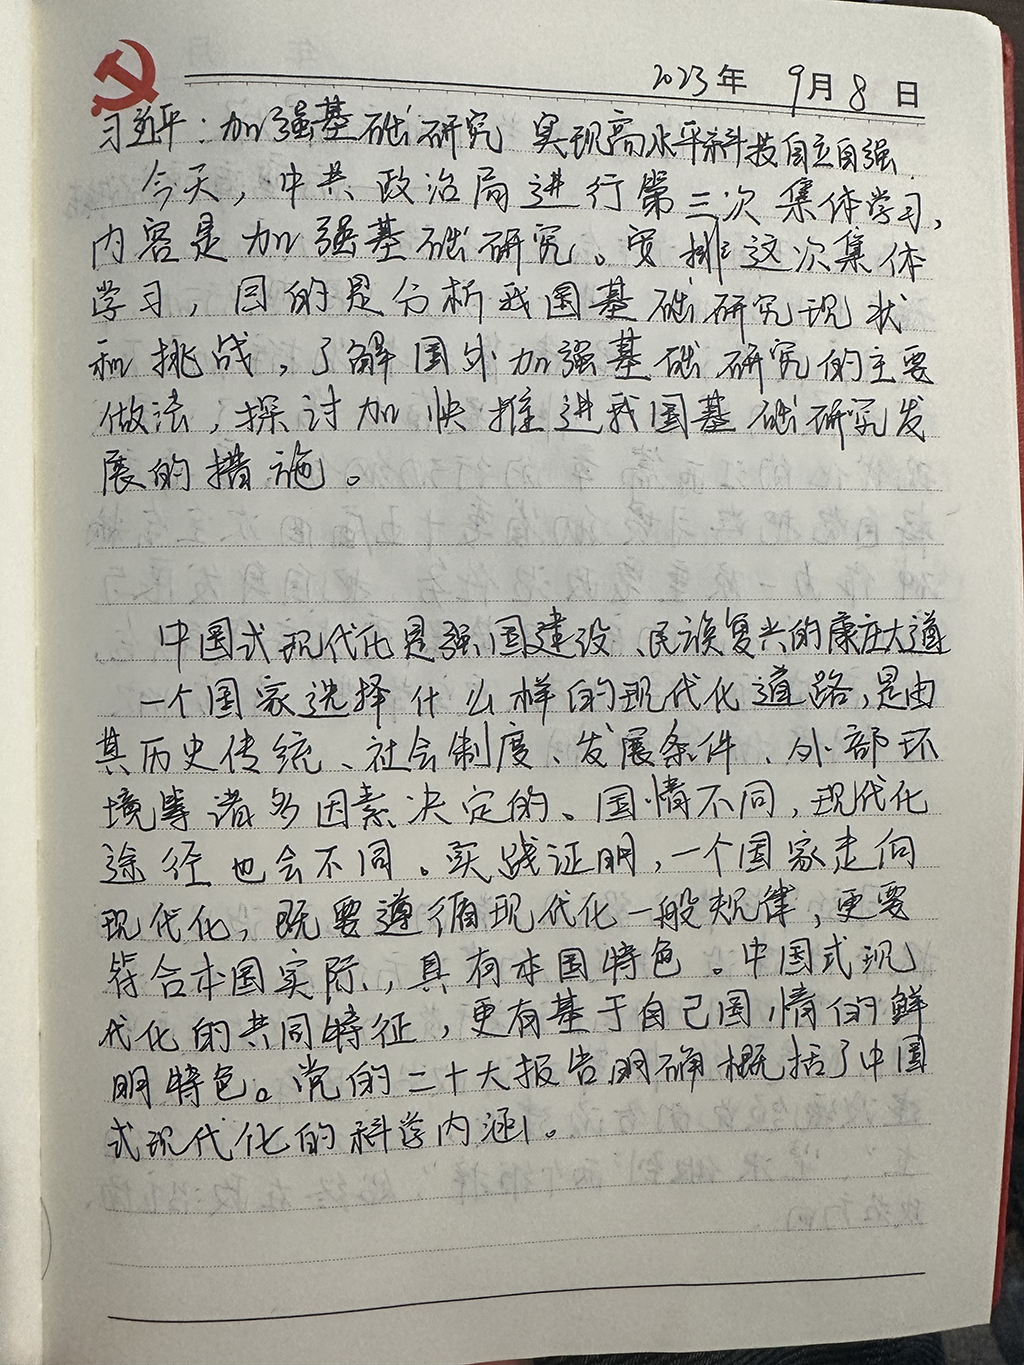 2023年 9月8日
习近平：加强基础研究 实现高水平科技自立自强.
今天，中共政治局进行第三次集体学习，
内容是加强基础研究。安排这次集体
学习，目的是分析我国基础研究现状
和挑战，了解国外加强基础研究的主要
做法，探讨加快推进我国基础研究发
展的措施。
中国式现代化是强国建设、民族复兴的康庄大道
一个国家选择什么样的现代化道路，是由
其历史传统、社会制度、发展条件、外部环
境等诸多因素决定的、国情不同，现代化
途径也会不同。实践证明，一个国家走向
现代化，既要遵循现代化一般规律，更要
符合本国实际，具有本国特色。中国式现
代化的共同特征，更有基于自己国情的鲜
明特色。党的二十大报告明确概括了中国
式现代化的科学内涵。